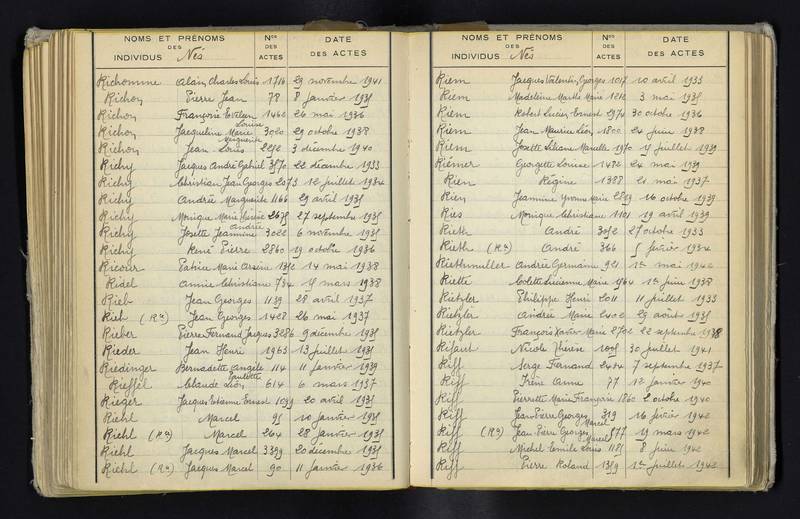 NOMS ET PRÉNOMS
DES
INDIVIDUS Nés
Nos
DES
ACTES
DATE
DES ACTES
Richomme Alain Charles Louis 1716 29 novembre 1941
Richon Pierre Jean 78 8 janvier 1935
Richon Françoise Evelyn Louise 1460 26 mai 1936
Richon Jacqueline Marie Marguerite 3020 29 octobre 1938
Richon Jean Louis 3 décembre 1940
Richy Jacques André Gabriel 3570 22 décembre 1933
Richy Christian Jean Georges 2073 12 juillet 1934
Richy Andrée Marguerite 1166 29 avril 1935
Richy Monique Marie Thérèse 27 septembre 1935
Richy Josette Jeannine Andrée 3022 6 novembre 1935
Richy René Pierre 2860 19 octobre 1936
Ricour 14 mai 1938
Ridel Annie Christiane 734 15 mars 1938
Rieb Jean Georges 1139 28 avril 1937
Rieb (Rn) Jean Georges 1428 26 mai 1937
Rieber Pierre Fernand Jacques 3286 9 décembre 1935
Rieder Jean Henri 1965 13 juillet 1935
Riedinger Bernadette Angèle Paulette 114 11 janvier 1939
Rieffel Claude Léon 614 6 mars 1937
Rieger Jacques Etienne Ernest 1039 20 avril 1935
Riehl Marcel 95 10 janvier 1935
Riehl (Rn) Marcel 264 28 janvier 1935
Riehl Jacques Marcel 3399 20 décembre 1935
Riehl (Rn) Jacques Marcel 90 11 janvier 1936
NOMS ET PRÉNOMS
DES
INDIVIDUS Nés
Nos
DES
ACTES
DATE
DES ACTES
Riem Jacques Valentin Georges 1017 10 avril 1933
Riem Madeleine Marthe Marie 1212 3 mai 1935
Riem Robert Lucien Ernest 2974 30 octobre 1936
Riem Jean Maurice Léon 1800 24 juin 1938
Riem Josette Liliane Marcelle 1970 15 juillet 1939
Riémer Georgette Louise 1482 24 mai 1939
Rien Régine 1388 21 mai 1937
Rien Jeannine Yvonne Marie 2829 16 octobre 1939
Ries Monique Christiane 1101 19 avril 1939
Rieth André 3052 27 octobre 1933
Rieth (Rn) André 366 5 février 1934
Riethmuller Andrée Germaine 921 1er mai 1942
Riette Colette Lucienne Marie 1964 1er juin 1938
Rietzler Philippe Henri 2011 11 juillet 1933
Rietzler Andrée Marie 2402 29 août 1935
Rietzler François Xavier Marie 2702 22 septembre 1938
Rifaut Nicole Thérèse 1005 30 juillet 1941
Riff Serge Fernand 2464 7 septembre 1937
Riff Irène Anne 77 12 janvier 1940
Riff Pierrette Marie Françoise 1860 2 octobre 1940
Riff Jean Pierre Georges Marcel 319 16 février 1942
Riff (Rn) Jean Pierre Georges Marcel 577 19 mars 1942
Riff Michel Emile Louis 1185 8 juin 1942
Riff Pierre Roland 1359 1er juillet 1942